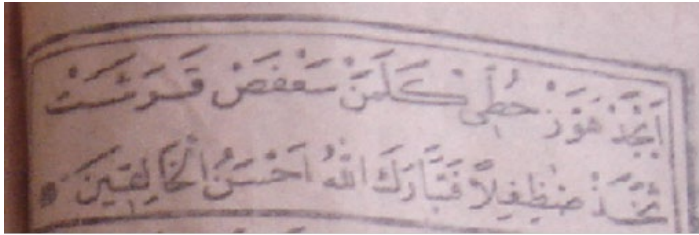 اَبْجَدْ هَوَّزْ حُطِّىْ كَلَمَنْ سَعْفَصْ قَرَشَتْ
ثَخَّذْ ضَظِغِلاً فَتَبَارَكَ اللهُ اَحْسَنُ الْخَالِقِينَ